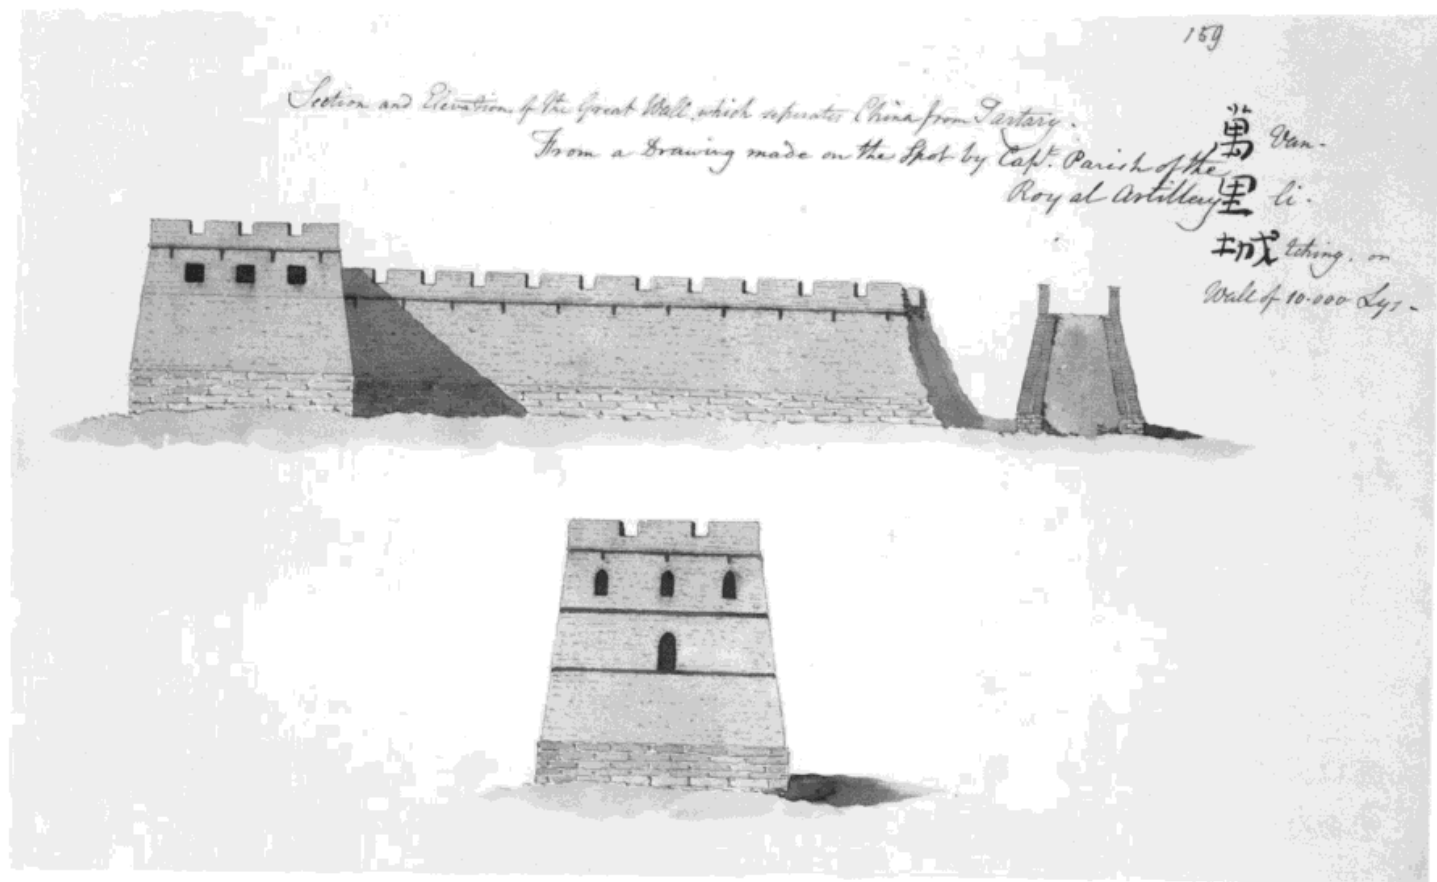 159
Section and Elevation of the Great Wall, which seperates China from Tartary.
From a Drawing made on the Spot by Capt. Parish of the
Royal Artillery
萬 Van-
里 li.
城 tching. or
Wall of 10.000 Lys-